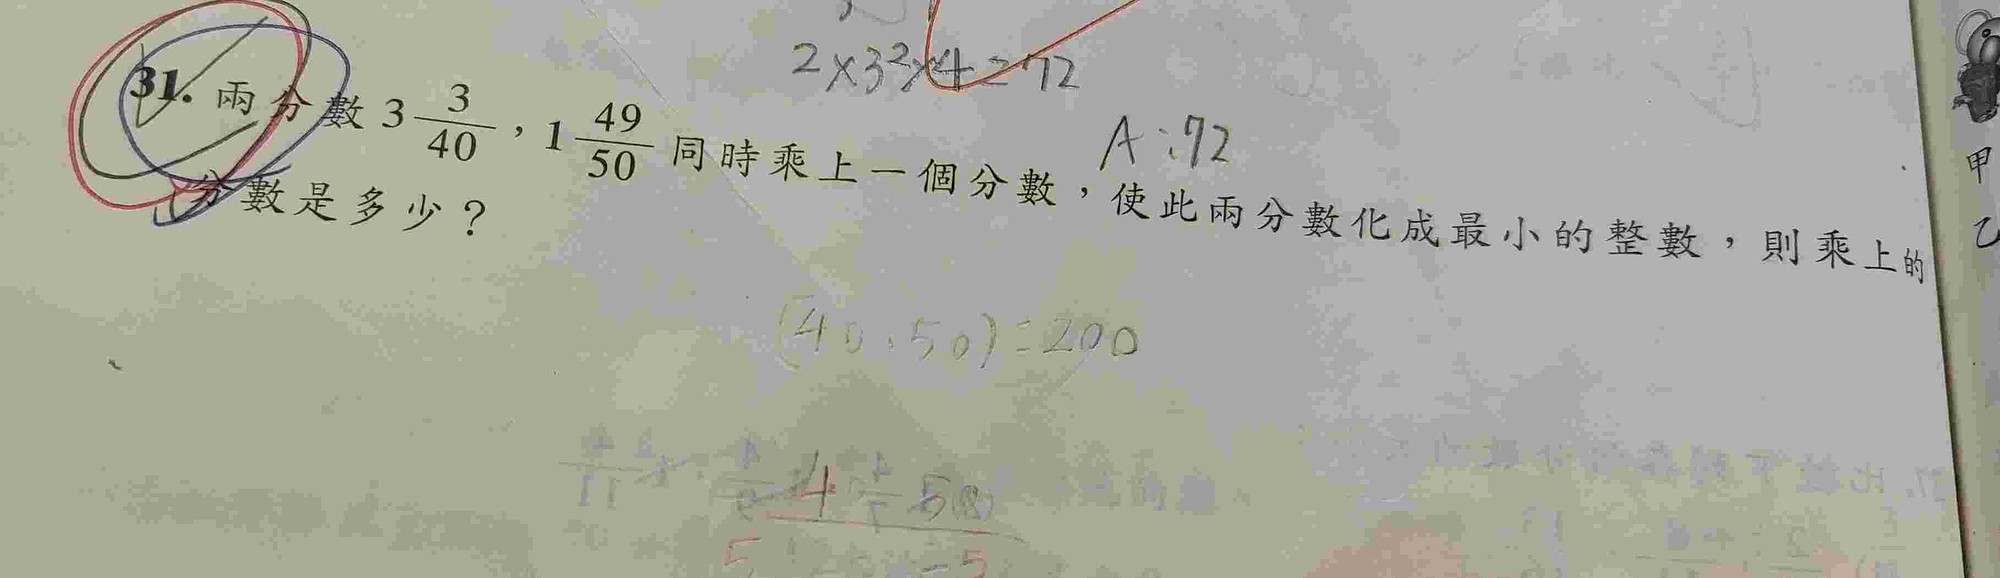 2×3²×4=72
A:72
31. 兩分數3 3/40，1 49/50 同時乘上一個分數，使此兩分數化成最小的整數，則乘上的
分數是多少？
(40.50)=200
甲
乙